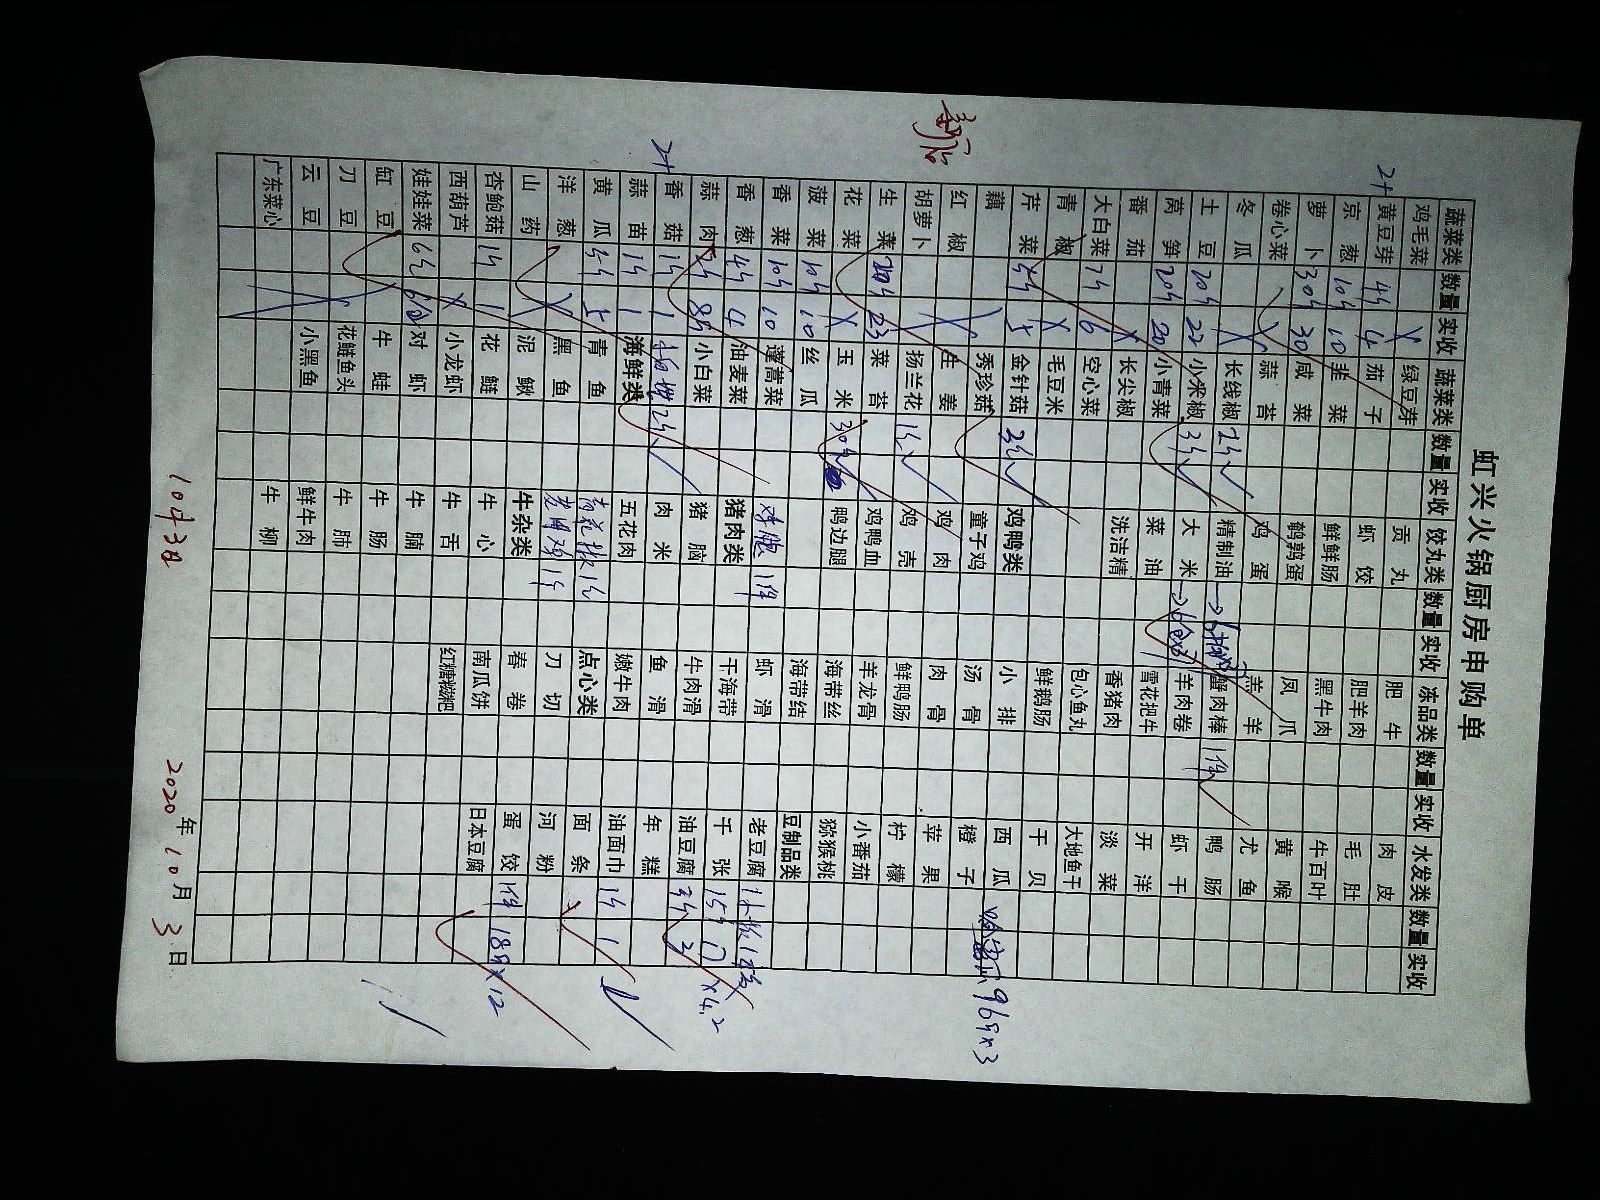 虹兴火锅厨房申购单
蔬菜类 数量 实收 蔬菜类 数量 实收 饺丸类 数量 实收 冻品类 数量 实收 水发类 数量 实收
鸡毛菜 X 绿豆芽 贡丸 肥牛 肉皮
黄豆芽 4斤 4 茄子 虾饺 肥羊肉 毛肚
京葱 10斤 10 韭菜 鲜鲜肠 黑牛肉 牛百叶
萝卜 30斤 30 咸菜 鹌鹑蛋 凤爪 黄喉
卷心菜 X 蒜苔 鸡蛋 羔羊 尤鱼
冬瓜 X 长线椒 2斤 √ 精制油 蟹肉棒 1件 鸭肠
土豆 20斤 22 小米椒 3斤 √ 大米 羊肉卷 虾干
莴笋 20斤 20 小青菜 菜油 雪花把牛 开洋
番茄 X 长尖椒 洗洁精 香猪肉 淡菜
大白菜 7斤 6 空心菜 包心鱼丸 大地鱼干
青椒 X 毛豆米 鲜鹅肠 干贝
芹菜 5斤 5 金针菇 3斤 √ 鸡鸭类 小排 西瓜 96斤×3
藕 秀珍菇 童子鸡 汤骨 橙子
红椒 生姜 鸡肉 肉骨 苹果
胡萝卜 扬兰花 1斤 √ 鸡壳 鲜鸭肠 柠檬
生菜 20斤 23 菜苔 鸡鸭血 羊龙骨 小番茄
花菜 X 玉米 30斤 鸭边腿 海带丝 猕猴桃
菠菜 10斤 10 丝瓜 海带结 豆制品类
香菜 10斤 10 蓬蒿菜 鸡腿 1件 虾滑 老豆腐
香葱 4斤 4 油麦菜 猪肉类 干海带 千张 15斤 17 ×4.2
蒜肉 8斤 小白菜 猪脑 牛肉滑 油豆腐 3斤 3
香菇 1斤 1 2斤 √ 肉米 鱼滑 年糕
蒜苗 1斤 1 海鲜类 五花肉 嫩牛肉 油面巾 1斤 1
黄瓜 5斤 5 青鱼 点心类 面条
洋葱 X 黑鱼 刀切 河粉
山药 泥鳅 牛杂类 春卷 蛋饺 1件 18斤×12
杏鲍菇 1斤 1 花鲢 牛心 南瓜饼 日本豆腐
西葫芦 X 小龙虾 牛舌 红糖糍粑
娃娃菜 6斤 对虾 牛腩
缸豆 牛蛙 牛肠
刀豆 花鲢鱼头 牛肺
云豆 小黑鱼 鲜牛肉
广东菜心 牛柳
10月3日 2020年10月3日